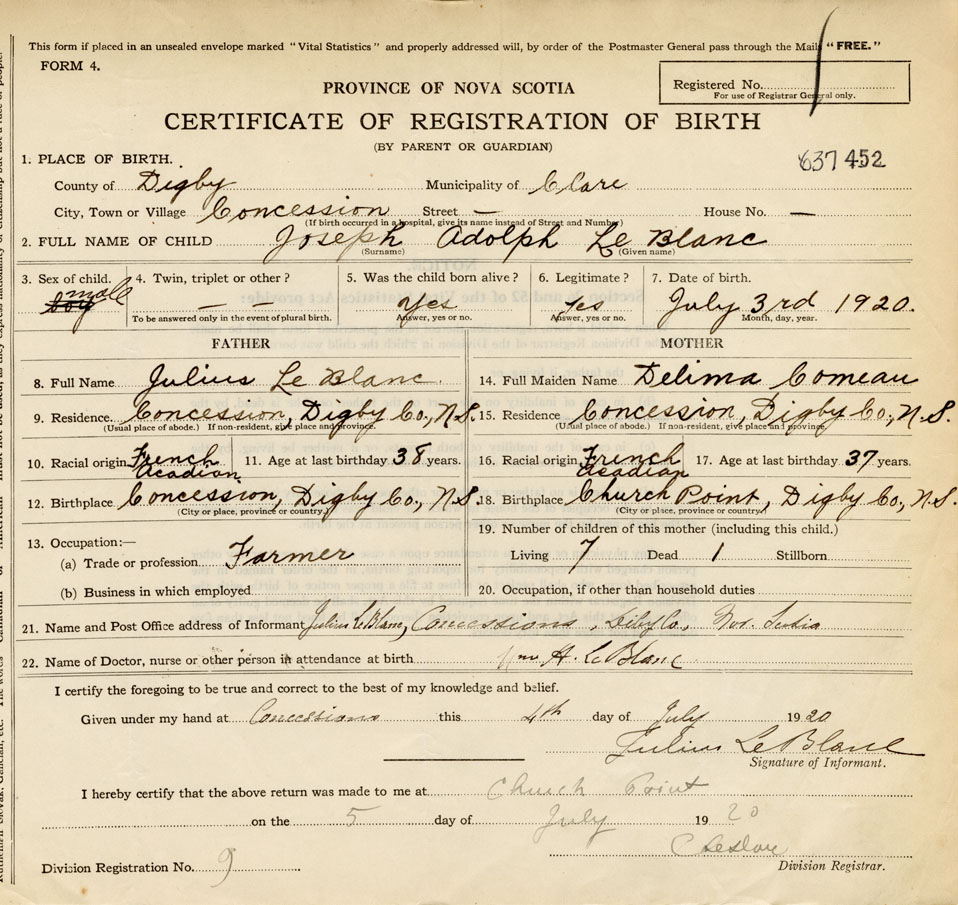 This form if placed in an unsealed envelope marked "Vital Statistics" and properly addressed will, by order of the Postmaster General pass through the Mails "FREE."
FORM 4.
Registered No.
For use of Registrar General only.
PROVINCE OF NOVA SCOTIA
CERTIFICATE OF REGISTRATION OF BIRTH
(BY PARENT OR GUARDIAN)
637 452
1. PLACE OF BIRTH.
County of Digby Municipality of Clare
City, Town or Village Concession Street — House No. —
(If birth occurred in a hospital, give its name instead of Street and Number)
2. FULL NAME OF CHILD Joseph Adolph Le Blanc
(Surname) (Given name)
3. Sex of child. 4. Twin, triplet or other? 5. Was the child born alive? 6. Legitimate? 7. Date of birth.
male
boy — — Yes Yes July 3rd 1920.
To be answered only in the event of plural birth. Answer, yes or no. Answer, yes or no. Month, day, year.
FATHER MOTHER
8. Full Name Julius Le Blanc. 14. Full Maiden Name Delima Comeau
9. Residence Concession, Digby Co., N.S. 15. Residence Concession, Digby Co., N.S.
(Usual place of abode.) If non-resident, give place and province. (Usual place of abode.) If non-resident, give place and province.
10. Racial origin French Acadian. 11. Age at last birthday 38 years. 16. Racial origin French Acadian 17. Age at last birthday 37 years.
12. Birthplace Concession, Digby Co., N.S. 18. Birthplace Church Point, Digby Co., N.S.
(City or place, province or country) (City or place, province or country)
13. Occupation:— 19. Number of children of this mother (including this child.)
(a) Trade or profession Farmer Living 7 Dead 1 Stillborn
(b) Business in which employed 20. Occupation, if other than household duties
21. Name and Post Office address of Informant Julius LeBlanc, Concessions, Digby Co., Nov. Scotia
22. Name of Doctor, nurse or other person in attendance at birth A. LeBlanc
I certify the foregoing to be true and correct to the best of my knowledge and belief.
Given under my hand at Concessions this 4th day of July 1920
Julius LeBlanc
Signature of Informant.
I hereby certify that the above return was made to me at Church Point
on the 5 day of July 1920
Division Registration No. 9 Division Registrar.